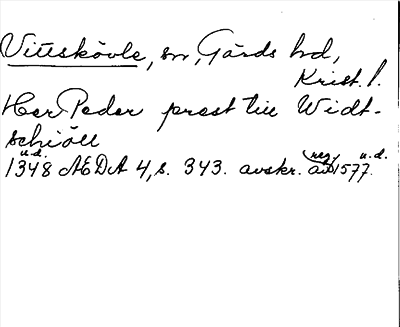 Vittskövle, sn, Gärds hd,
Krist. l.
Her Peder prest till Widt-
schiöll
u.d. reg. u.d.
1348 AEDA 4, s. 343. avskr. av 1577.